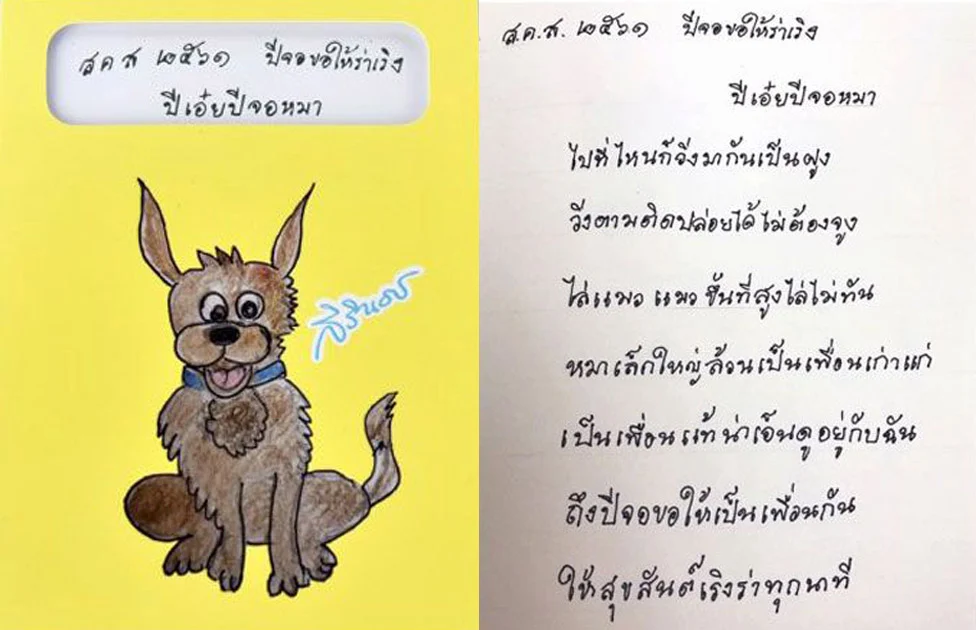 ส ค ส ๒๕๖๑ ปีจอขอให้ร่าเริง
ปีเอ๋ยปีจอหมา
สิรินธร
ส.ค.ส. ๒๕๖๑ ปีจอขอให้ร่าเริง
ปีเอ๋ยปีจอหมา
ไปที่ไหนก็วิ่งมากันเป็นฝูง
วิ่งตามติดปล่อยได้ไม่ต้องจูง
ไล่แมว แมว ขึ้นที่สูงไล่ไม่ทัน
หมาเล็กใหญ่ล้วนเป็นเพื่อนเก่าแก่
เป็นเพื่อนแท้น่าเอ็นดูอยู่กับฉัน
ถึงปีจอขอให้เป็นเพื่อนกัน
ให้สุขสันต์เริงร่าทุกนาที